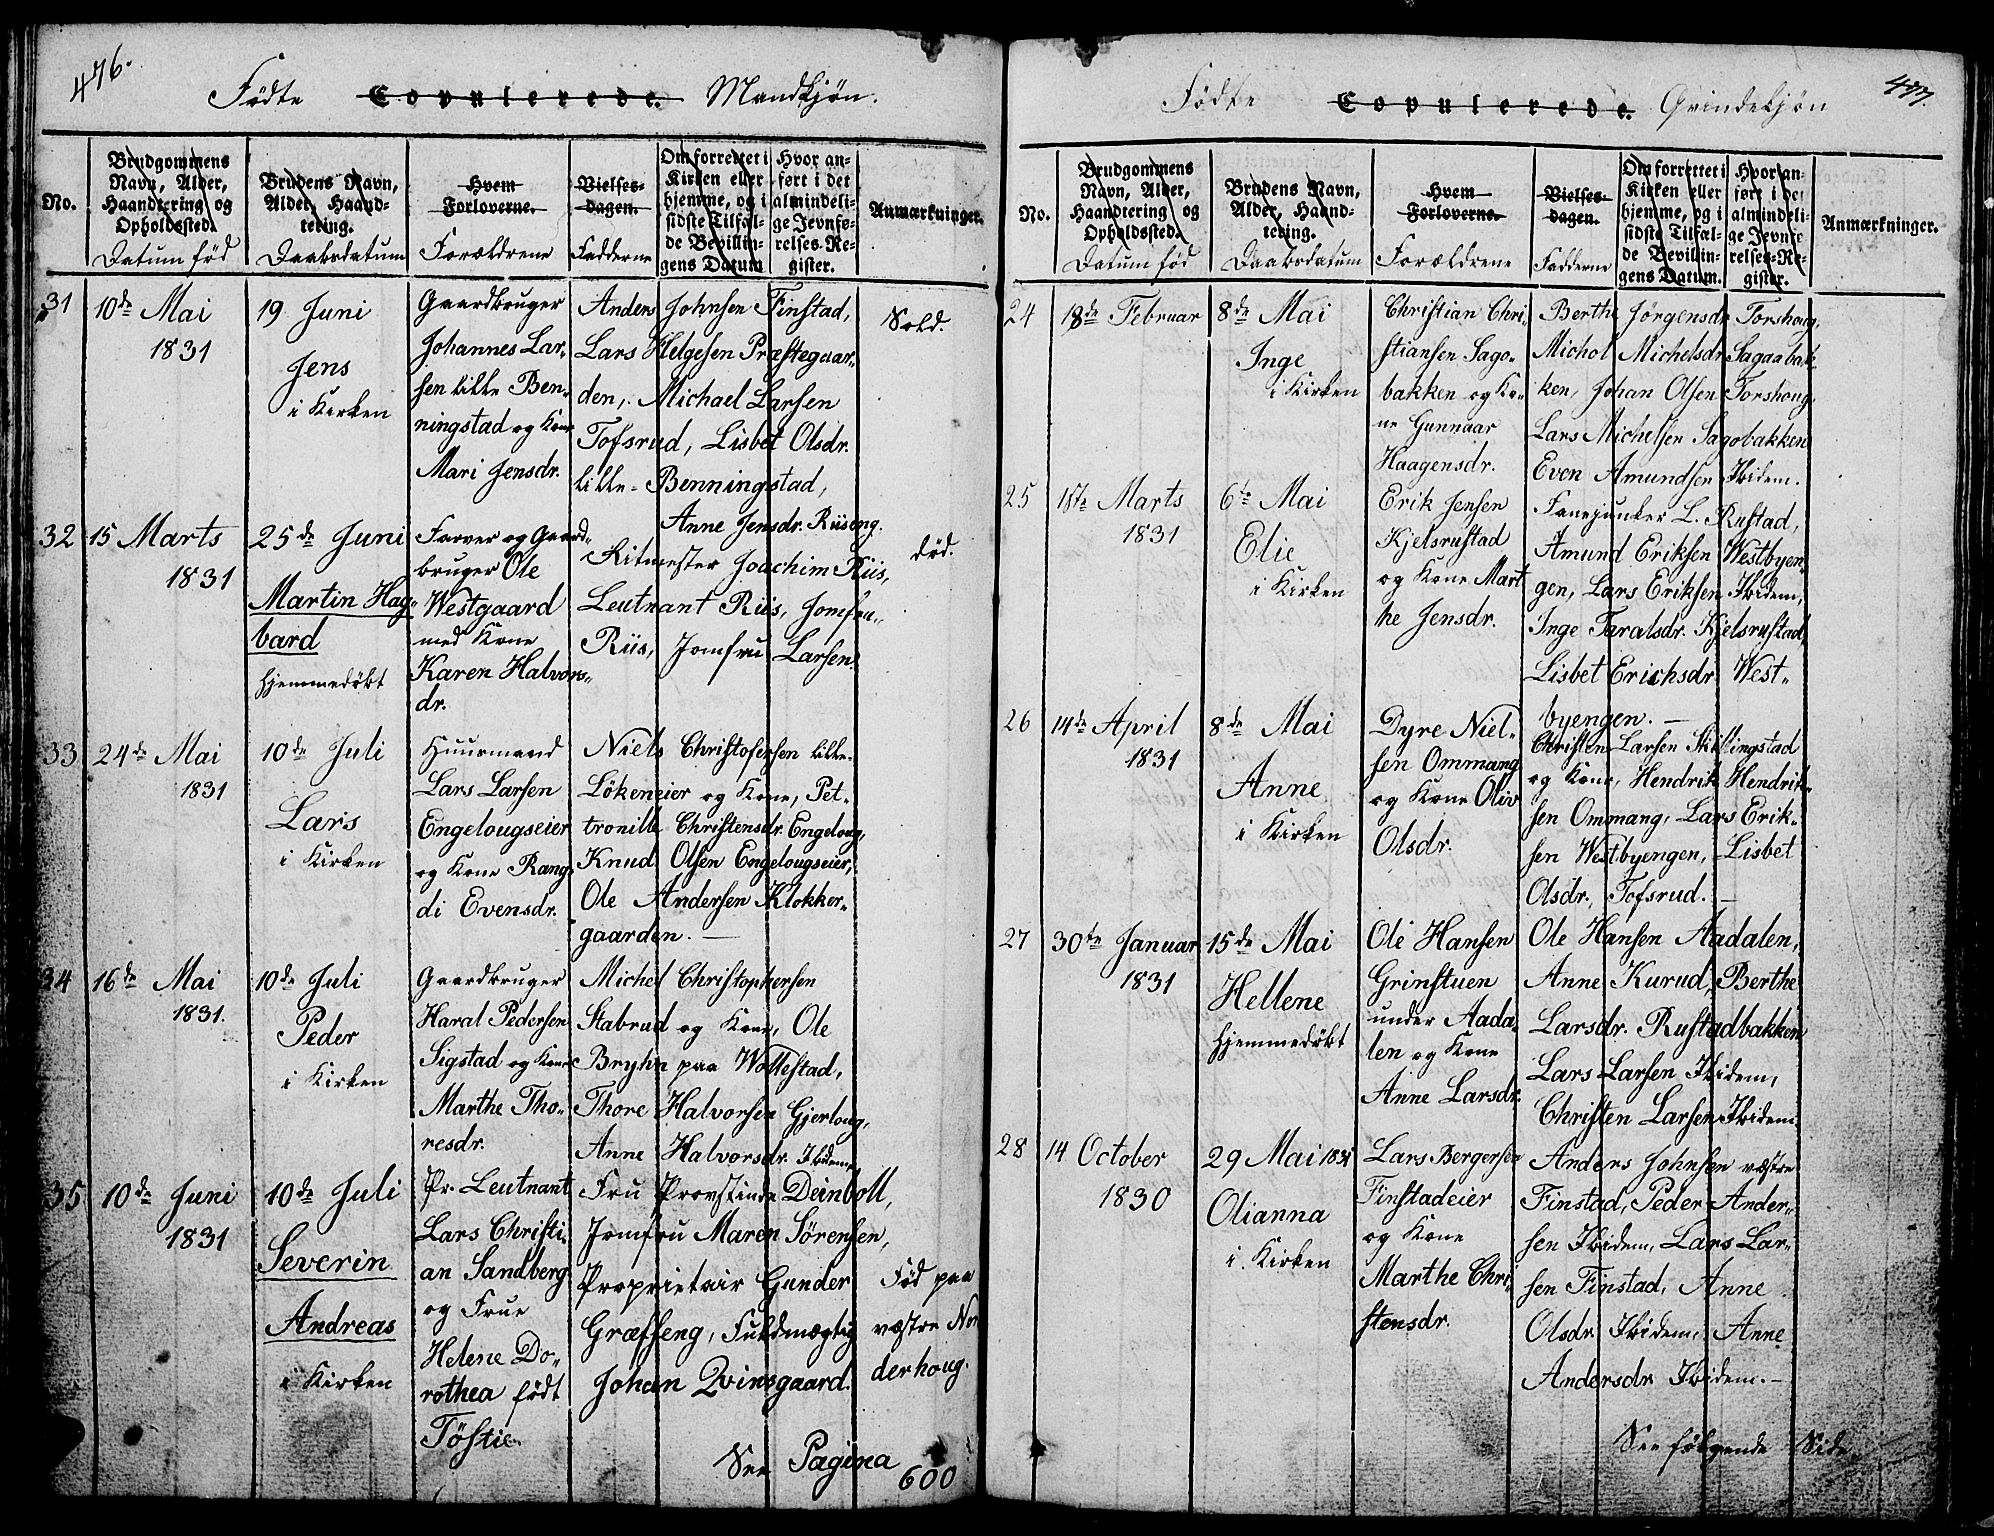 476.
Födte Copulerede. Mandkjøn.
No.
Brudgommens Navn, Alder, Haandtering og Opholdssted.
Datum föd
Brudens Navn, Alder, Haandtering.
Daabsdatum
Hvem Forloverne.
Forældrene
Vielsesdagen.
Fadderne
Om forrettet i Kirken eller hjemme, og i sidste Tilfælde Bevillingens Datum
Hvor anført i det almindelige Jevnførelses-Register.
Anmærkninger.
31
10de Mai
1831
19 Juni
Jens
i Kirken
Gaardbruger
Johannes Lar-
sen lille Ben-
ningstad og Kone
Mari Jensdr.
Anders Johnsen Finstad,
Lars Helgesen Præstegaar-
den, Michael Larsen
Tofsrud, Lisbet Olsdr.
lille-Benningstad,
Anne Jensdr. Riiseng.
Sold.
32
15 Marts
1831
25de Juni
Martin Hag-
bard
hjemmedöbt
Farver og Gaard-
bruger Ole
Westgaard
med Kone
Karen Halvors-
dr.
Ritmester Joachim Riis,
Leutnant Riis, Jomfru
Riis, Jomfru Larsen.
död.
33
24de Mai
1831
10de Juli
Lars
i Kirken
Huusmand
Lars Larsen
Engelougseier
og Kone Rang-
di Evensdr.
Niels Christofersen lille-
Lökeneier og Kone, Pet-
tronille Christensdr. Engeloug,
Knud Olsen Engelougseier,
Ole Andersen Klokker-
gaarden.
34
16de Mai
1831.
10de Juli
Peder
i Kirken
Gaardbruger
Haral Pedersen
Sigstad og Kone
Marthe Tho-
resdr.
Michel Christophersen
Stabrud og Kone, Ole
Bryhn paa Wollestad,
Thore Halvorsen Gjerloug,
Anne Halvorsdr. Ibidem,
35
10de Juni
1831
10de Juli
Severin
Andreas
i Kirken
Pr. Leutnant
Lars Christi-
an Sandberg
og Frue
Helene Do-
rothea födt
Töstie
Fru Provstinde Deinboll,
Jomfru Maren Sörensen,
Proprietair Gunder
Græfseng, Fuldmægtig
Johan Qvinsgaard.
Föd paa
vestre No
derhoug.
See Pagina
600
477.
Födte Copulerede. Qvindekjön
No.
Brudgommens Navn, Alder, Haandtering og Opholdssted.
Datum föd
Brudens Navn, Alder, Haandtering.
Daabsdatum
Hvem Forloverne.
Forældrene
Vielsesdagen.
Fadderne
Om forrettet i Kirken eller hjemme, og i sidste Tilfælde Bevillingens Datum.
Hvor anført i det almindelige Jevnførelses-Register.
Anmærkninger.
24
18de Februar
8de Mai
Inge
i Kirken
Christian Chri-
stiansen Sago-
bakken og Ko-
ne Gunnaar
Haagensdr.
Berthe Jörgensdr Torshoug,
Michol Michelsdr. Sagaabak-
ken, Johan Olsen Torshoug,
Lars Michelsen Sagobakken
Even Amundsen Ibidem.
25
18te Marts
1831
6te Mai
Elie
i Kirken
Erik Jensen
Kjelsrustad
og Kone Mart
he Jensdr.
Fanejunker L. Rustad,
Amund Eriksen Westbyen-
gen, Lars Eriksen Ibidem,
Inge Taralsdr. Kjelsrustad,
Lisbet Erichsdr. West-
byengen.
26
14de April
1831
8de Mai
Anne
i Kirken
Dyre Niel-
sen Ommang
og Kone Oliv
Olsdr.
Christen Larsen Skillingstad
og Kone, Hendrik Hendrik-
sen Ommang, Lars Erik-
sen Westbyengen, Lisbet
Olsdr. Tofsrud.
27
30te Januar
1831
15de Mai
Hellene
hjemmedöbt
Ole Hansen
Grinstuen
under Aada-
len og Kone
Anne Larsdr.
Ole Hansen Aadalen,
Anne Kurud, Berthe
Larsdr. Rustadbakken
Lars Larsen Ibidem,
Christen Larsen Ibidem
28
14 October
1830
29 Mai 1831
Olianna
i Kirken
Lars Bergersen
Finstadeier
og Kone
Marthe Chri-
stensdr.
Anders Johnsen vestre
Finstad, Peder Ander-
sen Ibidem, Lars Lar-
sen Finstad, Anne
Olsdr Ibidem, Anne
Andersdr Ibidem.
See fölgende Side